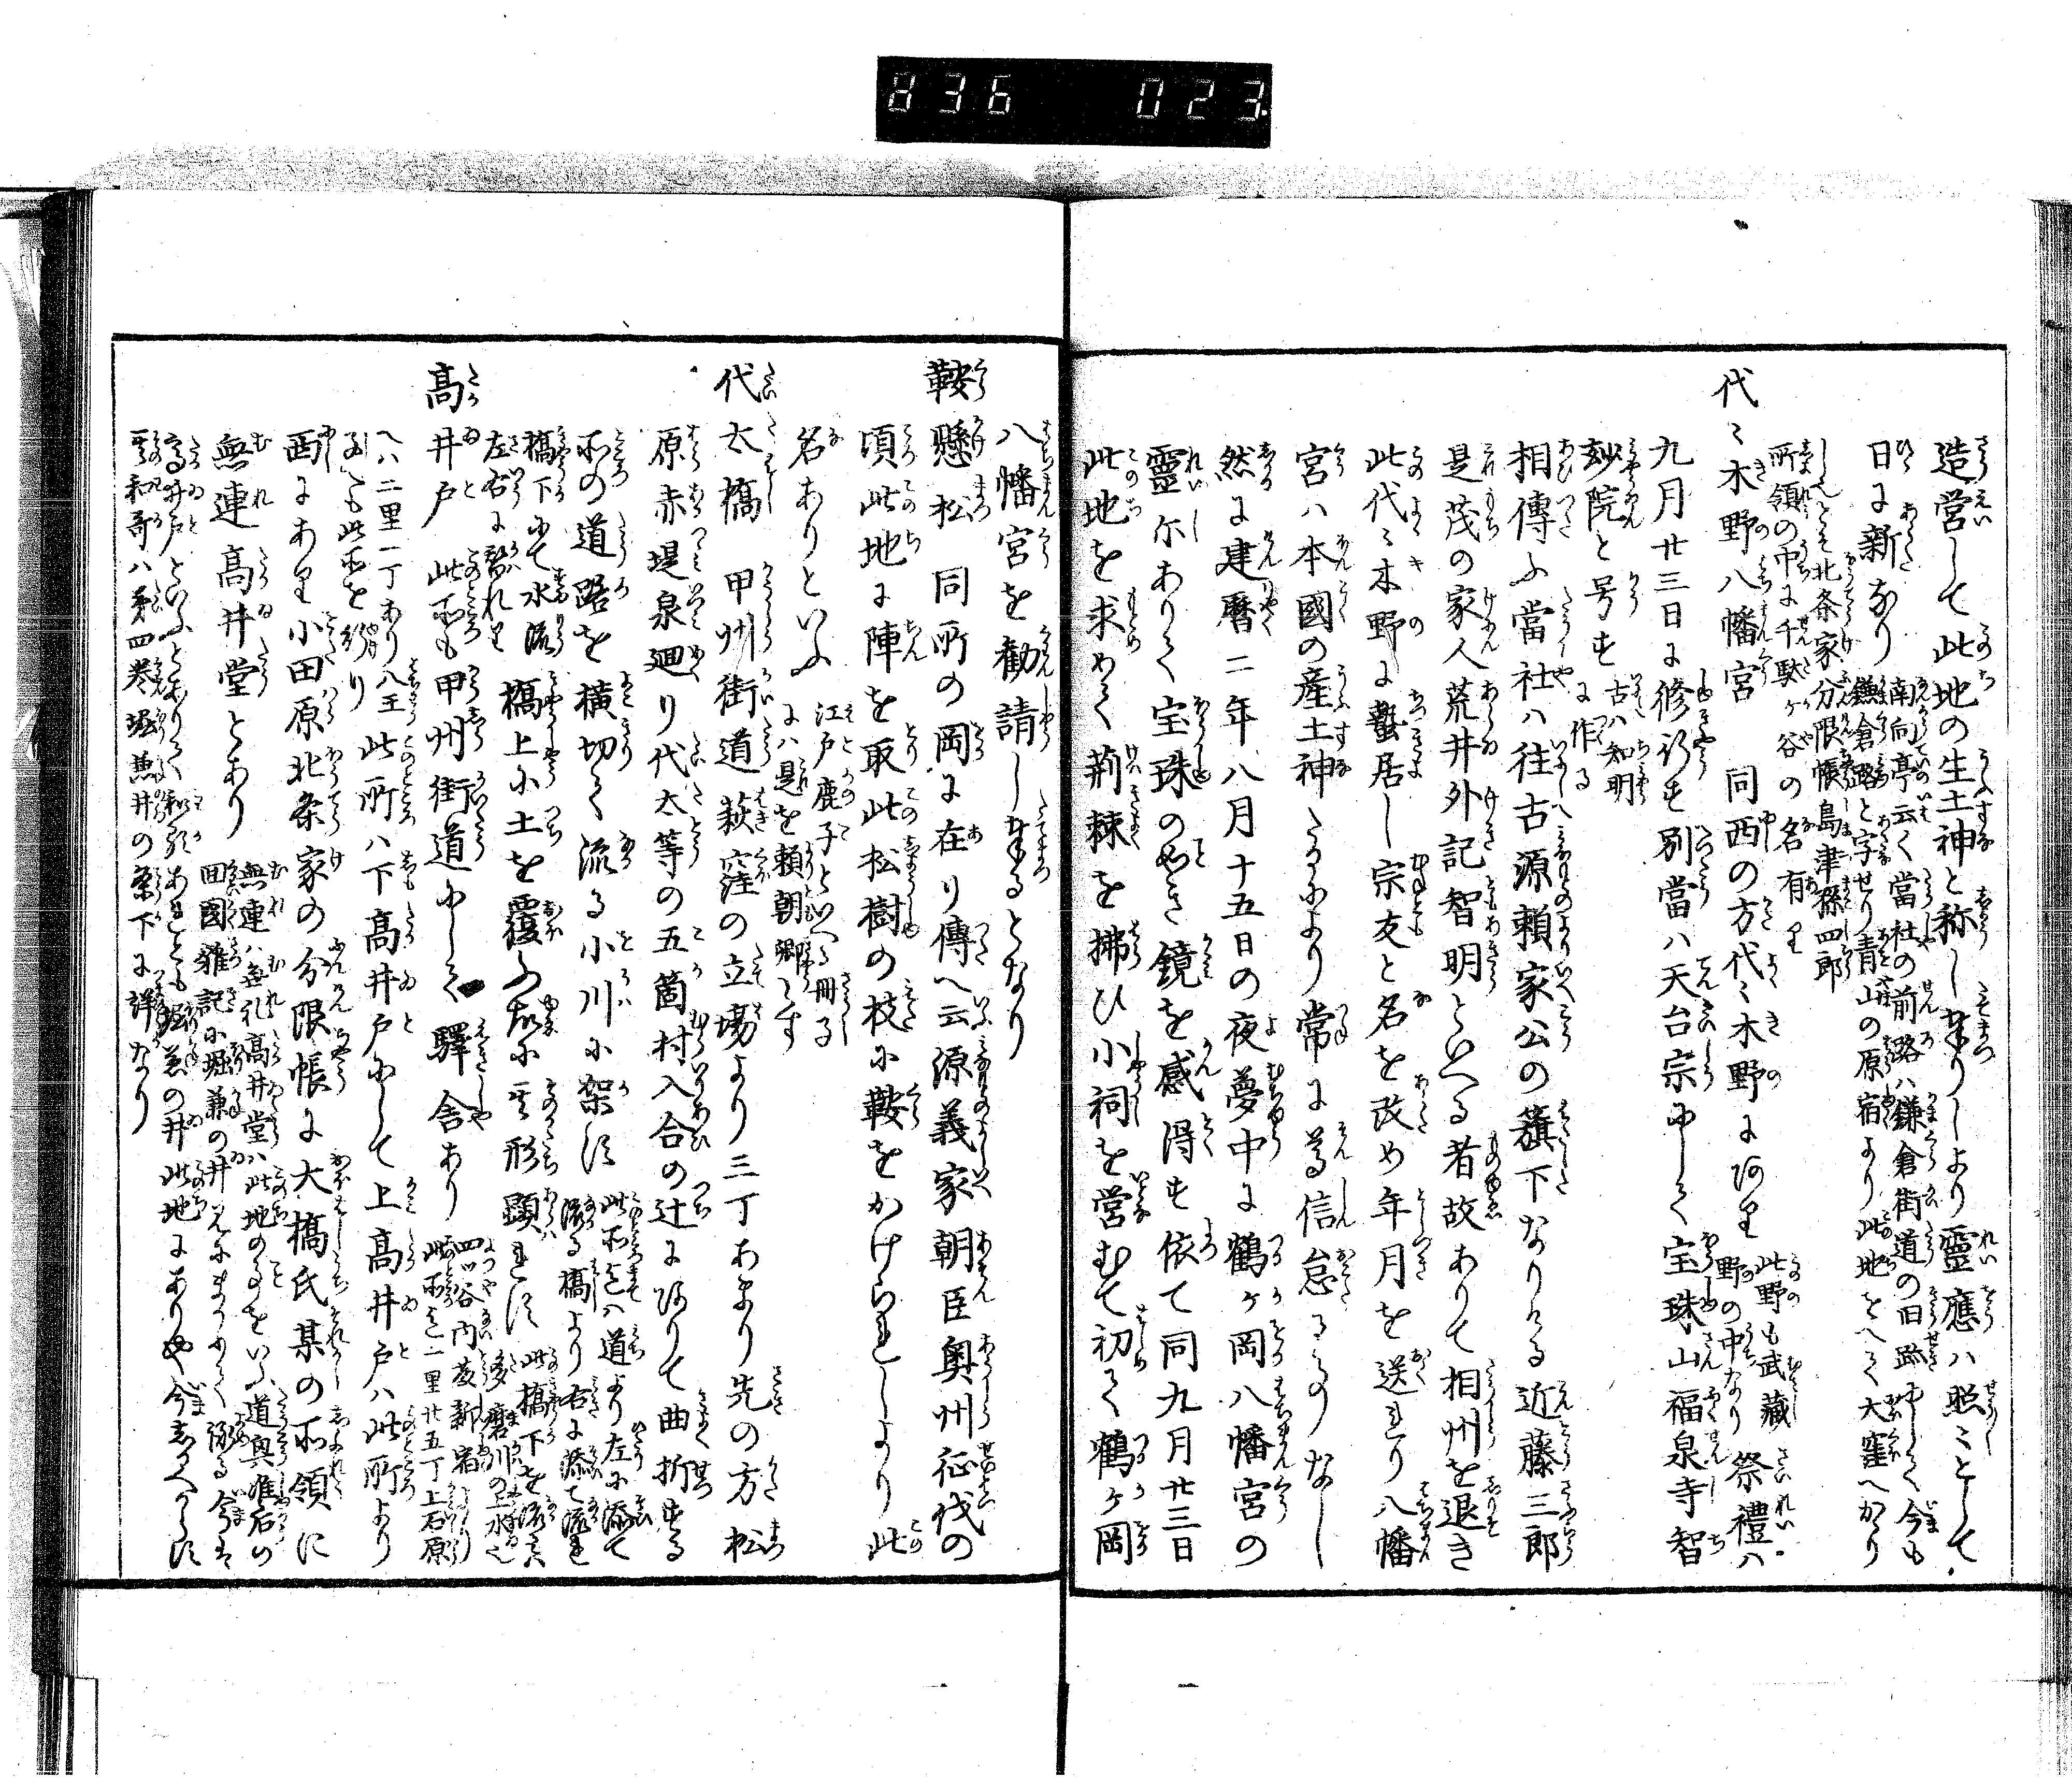 836 023
造営して此地の生土神と称し奉りしより靈應ハ照〻として
日に新なり
南向亭云く當社の前路ハ鎌倉街道の旧跡にして今も
鎌倉路と字せり青山の原宿より此地をへて大窪へかゝり
しとそ北条家分限帳島津孫四郎
所領の中に千駄ヶ谷の名有り
代〻木野八幡宮 同西の方代〻木野にあり
此野も武蔵
野の中なり
祭禮ハ
九月廿三日に修行す別當ハ天台宗にして宝珠山福泉寺智
玅院と号す
古ハ知明
に作る
相傳ふ當社ハ往古源頼家公の籏下なりける近藤三郎
是茂の家人荒井外記智明といへる者故ありて相州を退き
此代〻木野に蟄居し宗友と名を改め年月を送れり八幡
宮ハ本國の産土神たるにより常に尊信怠る事なし
然に建暦二年八月十五日の夜夢中に鶴ヶ岡八幡宮の
靈尓ありて宝珠の如き鏡を感得す依て同九月廿三日
此地を求めて荊棘を拂ひ小祠を営むて初て鶴ヶ岡
八幡宮を勧請し奉るとなり
鞍懸松 同所の岡に在り傳へ云源義家朝臣奥州征伐の
頃此地に陣を取此松樹の枝に鞍をかけられしより此
名ありといふ
江戸鹿子といへる冊子
にハ是を頼朝卿とす
代太橋 甲州街道萩窪の立場より三丁あまり先の方松
原赤堤泉廻り代太等の五箇村入合の辻にありて曲折する
所の道路を横切て流る小川に架す
此所迄ハ道より左に添て
流る橋より右に添て流れ
橋下にて水流
左右に替れり
橋上に土を覆ふ故に其形顕れす
此橋下を流るゝハ
多磨川の上水也
高井戸 此所も甲州街道にして驛舎あり
四ツ谷内藤新宿より
此所迄二里廿五丁上石原
へハ二里一丁あり八王
子へも此所を
此所ハ下高井戸にして上高井戸ハ此所より
西にあり小田原北条家の分限帳に大橋氏某の所領に
無連高井堂とあり
無連ハ無礼高井堂ハ此地の事をいふ道興准后の
回國雑記に堀兼の井見にまかりて
高井戸といふとありて和歌あれとも堀兼の井此地にありや今志るへからす
其和哥ハ第四巻堀兼井の条下に詳なり